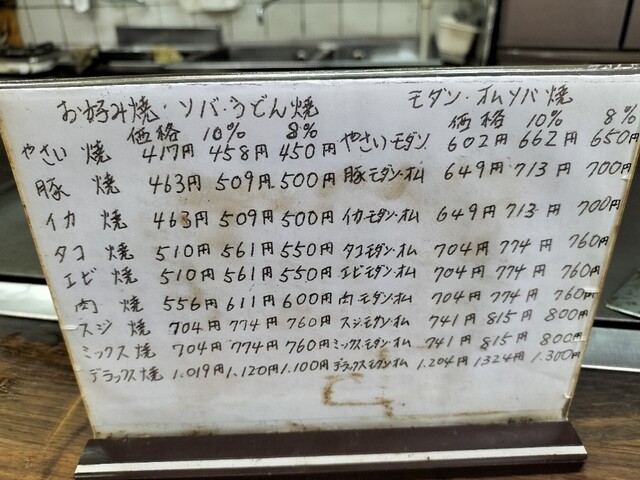 お好み焼・ソバ・うどん焼 モダン・オムソバ焼
価格 10% 8% 価格 10% 8%
やさい焼 417円 458円 450円 やさいモダン 602円 662円 650円
豚焼 463円 509円 500円 豚モダン・オム 649円 713円 700円
イカ焼 463円 509円 500円 イカモダン・オム 649円 713円 700円
タコ焼 510円 561円 550円 タコモダン・オム 704円 774円 760円
エビ焼 510円 561円 550円 エビモダン・オム 704円 774円 760円
肉焼 556円 611円 600円 肉モダン・オム 704円 774円 760円
スジ焼 704円 774円 760円 スジ・モダン・オム 741円 815円 800円
ミックス焼 704円 774円 760円 ミックス・モダン・オム 741円 815円 800円
デラックス焼 1.019円 1.120円 1.100円 デラックスモダン・オム 1.204円 1324円 1.300円